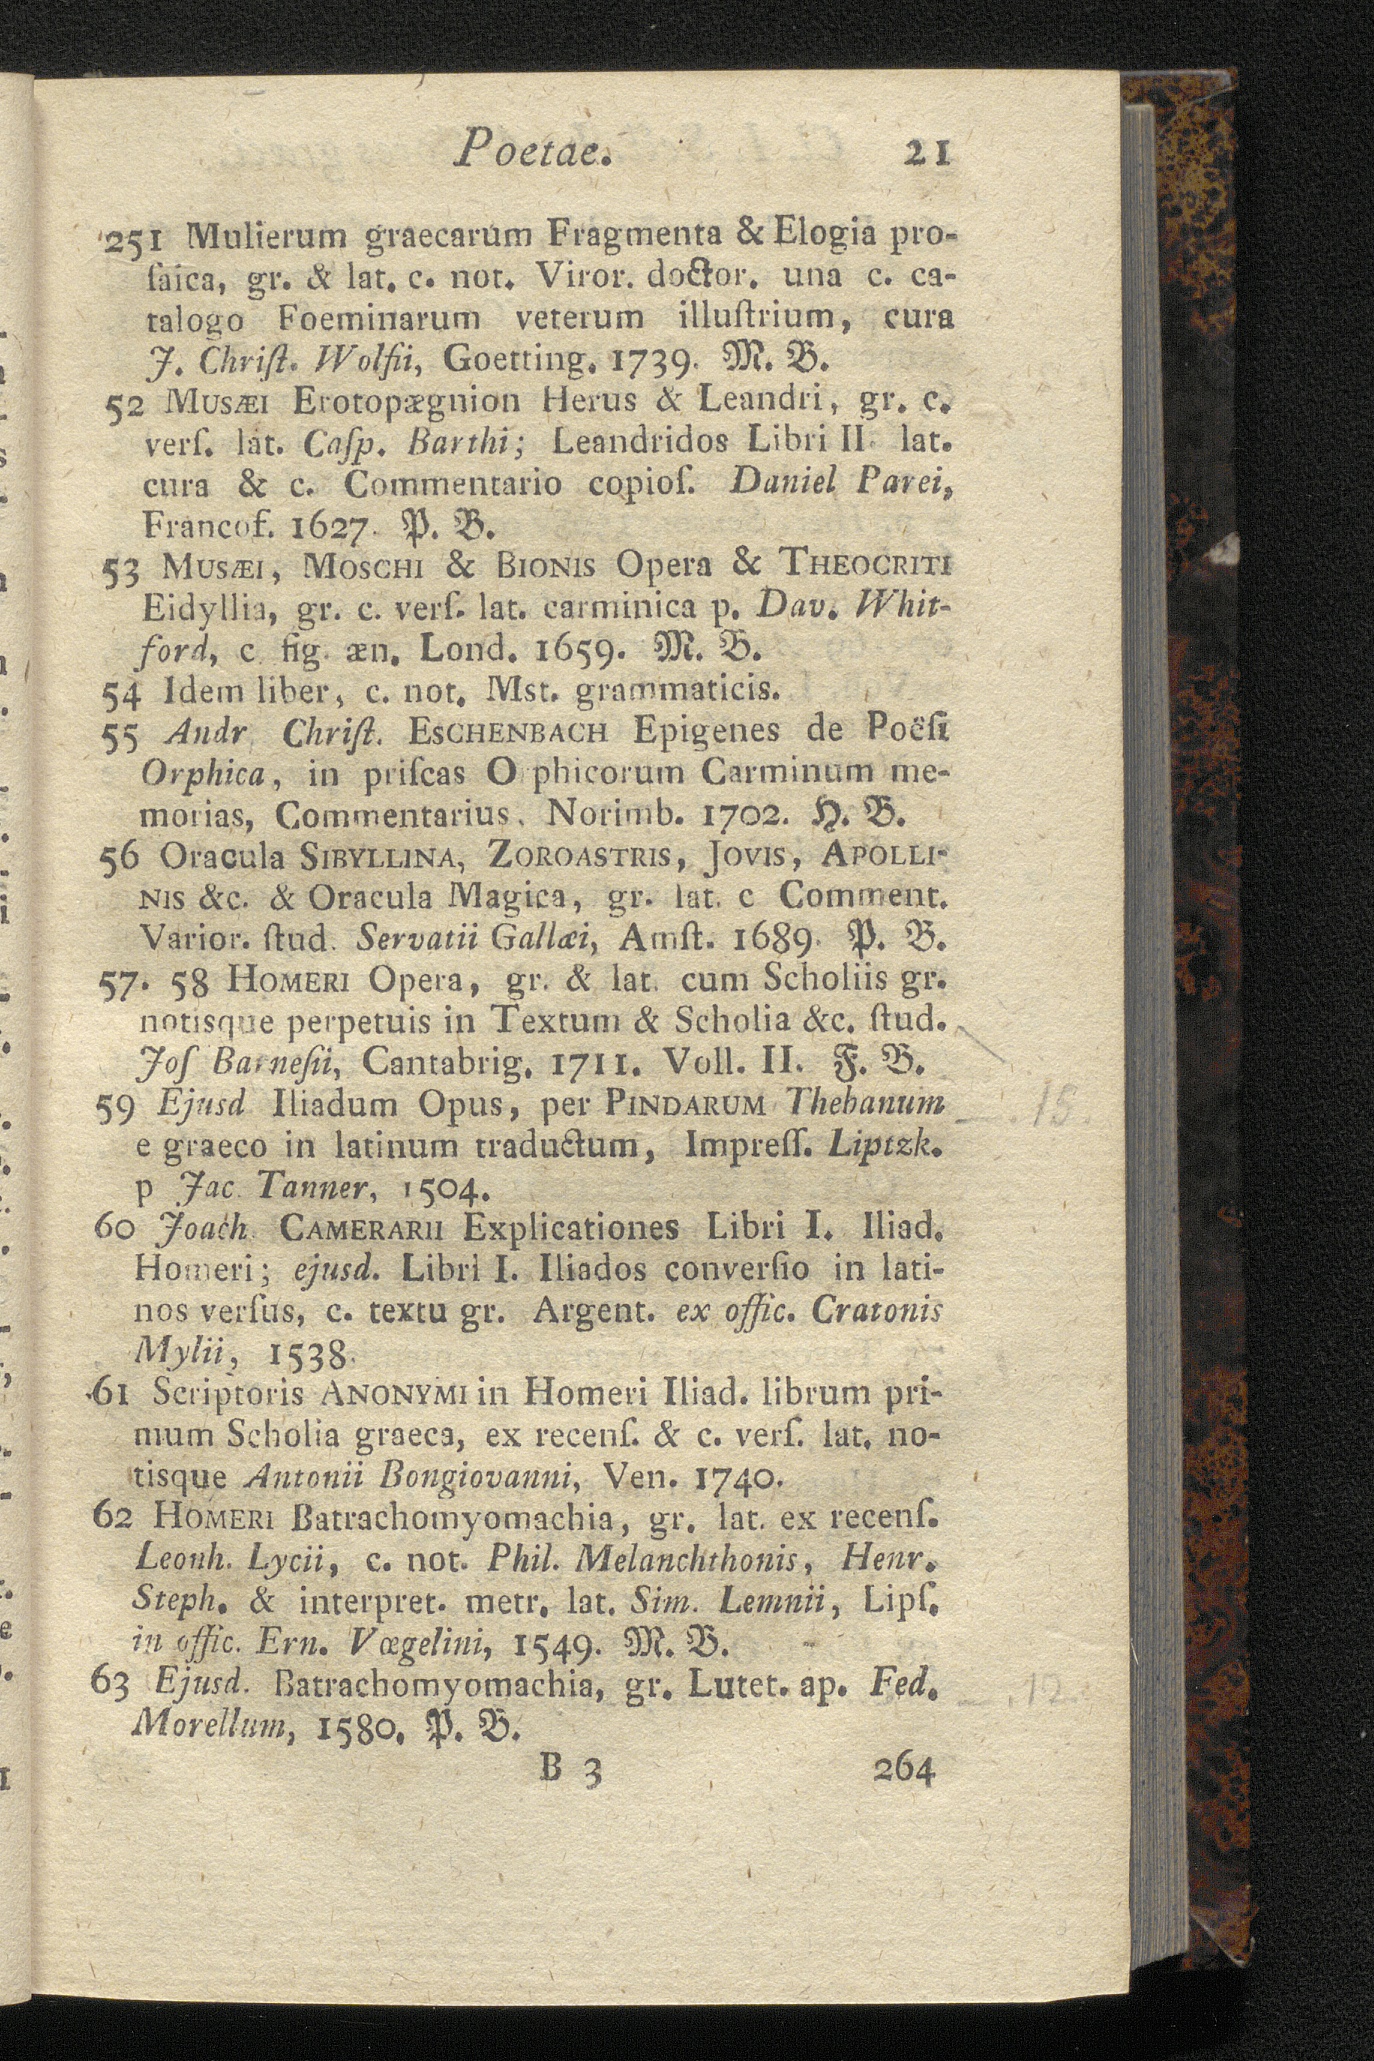 Poetae. 21
251 Mulierum graecarum Fragmenta & Elogia pro-
ſaica, gr. & lat. c. not. Viror. doctor. una c. ca-
talogo Foeminarum veterum illuſtrium, cura
J. Chriſt. Wolfii, Goetting. 1739. M. B.
52 MUSÆI Erotopægnion Herus & Leandri, gr. c.
verſ. lat. Caſp. Barthi; Leandridos Libri II. lat.
cura & c. Commentario copioſ. Daniel Parei,
Francof. 1627. P. B.
53 MUSÆI, MOSCHI & BIONIS Opera & THEOCRITI
Eidyllia, gr. c. verſ. lat. carminica p. Dav. Whit-
ford, c fig. æn. Lond. 1659. M. B.
54 Idem liber, c. not. Mst. grammaticis.
55 Andr Chriſt. ESCHENBACH Epigenes de Poëſi
Orphica, in priſcas O phicorum Carminum me-
morias, Commentarius. Norimb. 1702. H. B.
56 Oracula SIBYLLINA, ZOROASTRIS, JOVIS, APOLLI-
NIS &c. & Oracula Magica, gr. lat. c Comment.
Varior. ſtud. Servatii Gallæi, Amſt. 1689. P. B.
57. 58 HOMERI Opera, gr. & lat. cum Scholiis gr.
notisque perpetuis in Textum & Scholia &c. ſtud.
Joſ Barneſii, Cantabrig. 1711. Voll. II. F. B.
59 Ejusd Iliadum Opus, per PINDARUM Thebanum 15.
e graeco in latinum traductum, Impreſſ. Liptzk.
p Jac. Tanner, 1504.
60 Joach. CAMERARII Explicationes Libri I. Iliad.
Homeri; ejusd. Libri I. Iliados converſio in lati-
nos verſus, c. textu gr. Argent. ex offic. Cratonis
Mylii, 1538.
61 Scriptoris ANONYMI in Homeri Iliad. librum pri-
mum Scholia graeca, ex recenſ. & c. verſ. lat. no-
tisque Antonii Bongiovanni, Ven. 1740.
62 HOMERI Batrachomyomachia, gr. lat. ex recenſ.
Leonh. Lycii, c. not. Phil. Melanchthonis, Henr.
Steph. & interpret. metr. lat. Sim. Lemnii, Lipſ.
in offic. Ern. Vœgelini, 1549. M. B.
63 Ejusd. Batrachomyomachia, gr. Lutet. ap. Fed. 12
Morellum, 1580. P. B.
B 3 264